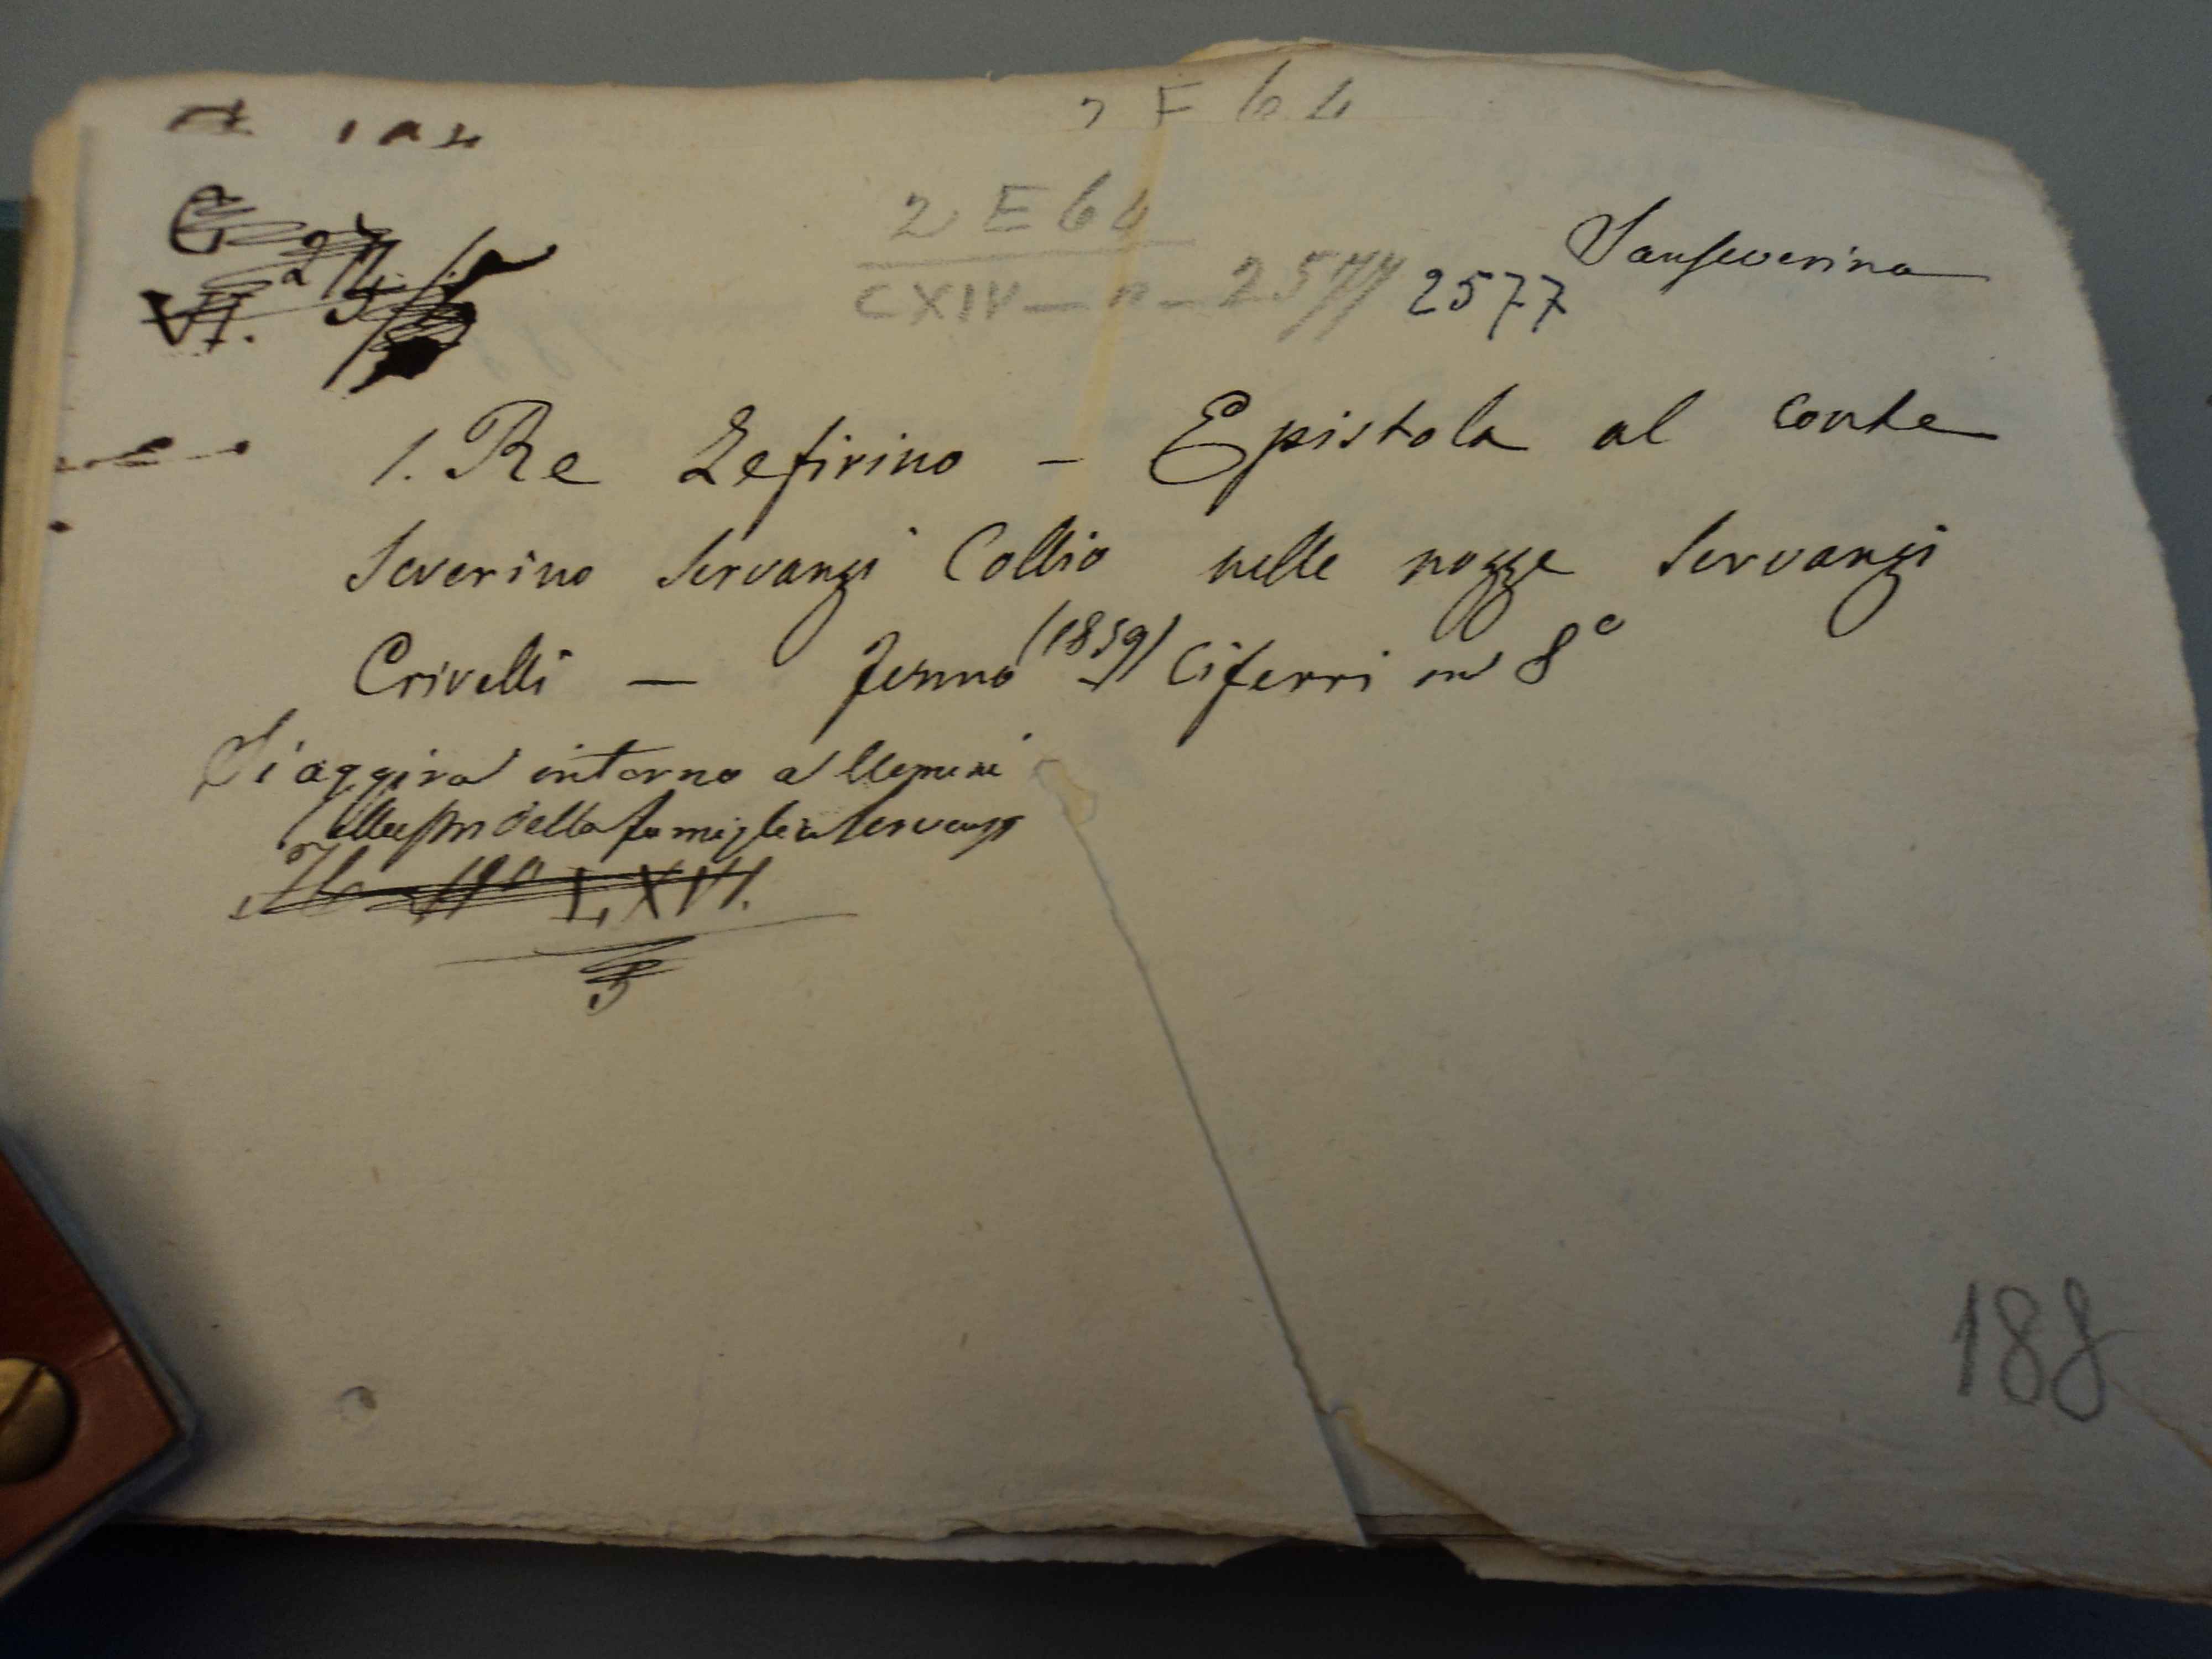 2 E 64
2 E 64
Sanseverina
CXIV - n - 2577 2577
VI.
1. Re Zefirino - Epistola al conte
Severino Servanzi Collio nelle nozze Servanzi
Crivelli - Fermo (1859) Ciferri in 8°
Si aggira intorno a
della famiglia Servanzi
LXVI.
188